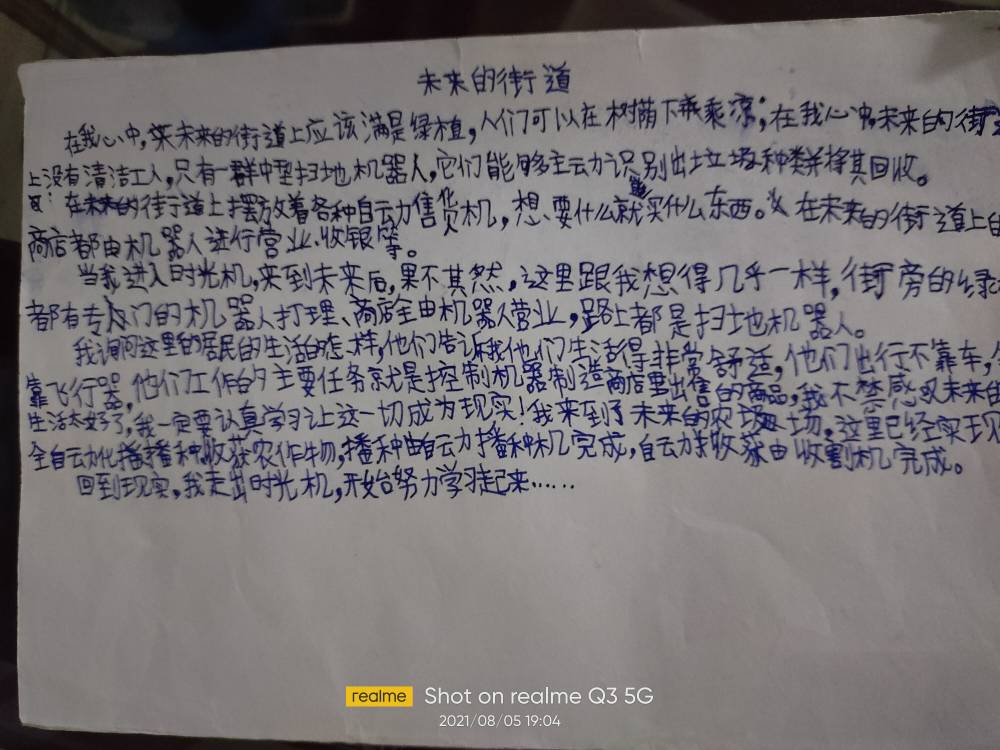 未来的街道
在我心中,未来的街道上应该满是绿植,人们可以在树荫下乘凉;在我心中,未来的街
上没有清洁工人,只有一群中型扫地机器人,它们能够主动识别出垃圾种类并将其回收。
在街道上摆放着各种自动售货机,想要什么就买什么东西。在未来的街道上的
商店都由机器人进行营业、收银等。
当我进入时光机,来到未来后,果不其然,这里跟我想得几乎一样,街旁的绿植
都有专门的机器人打理、商店全由机器人营业,路上都是扫地机器人。
我询问这里的居民的生活的怎样,他们告诉我他们生活得非常舒适,他们出行不靠车,
靠飞行器,他们工作的主要任务就是控制机器制造商店里出售的商品,我不禁感叹未来的
生活太好了,我一定要认真学习让这一切成为现实!我来到了未来的农场,这里已经实现
全自动化播种,收获农作物,播种由自动播种机完成,自动收获由收割机完成。
回到现实,我走出时光机,开始努力学习起来……
realme Shot on realme Q3 5G
2021/08/05 19:04